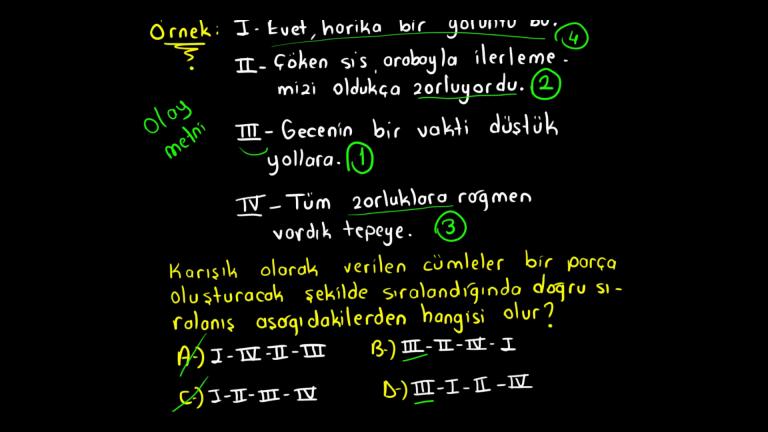 Örnek: I- Evet, harika bir görüntü bu. 4
II- Çöken sis, arabayla ilerleme-
mizi oldukça zorluyordu. 2
Olay
metni
III- Gecenin bir vakti düştük
yollara. 1
IV- Tüm zorluklara rağmen
vardık tepeye. 3
Karışık olarak verilen cümleler bir parça
oluşturacak şekilde sıralandığında doğru sı-
ralanış aşağıdakilerden hangisi olur?
A-) I-IV-II-III B-) III-II-IV-I
C-) I-II-III-IV D-) III-I-II-IV